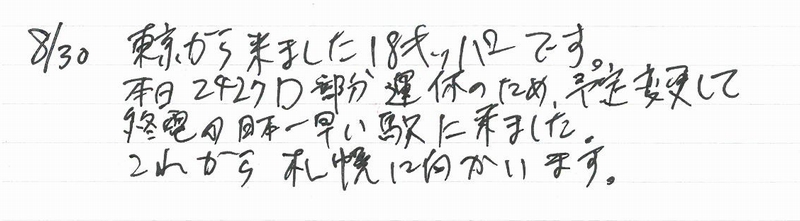 8/30 東京から来ました18キッパーです。
本日2427D部分運休のため、予定変更して
終電の日本一早い駅に来ました。
これから札幌に向かいます。